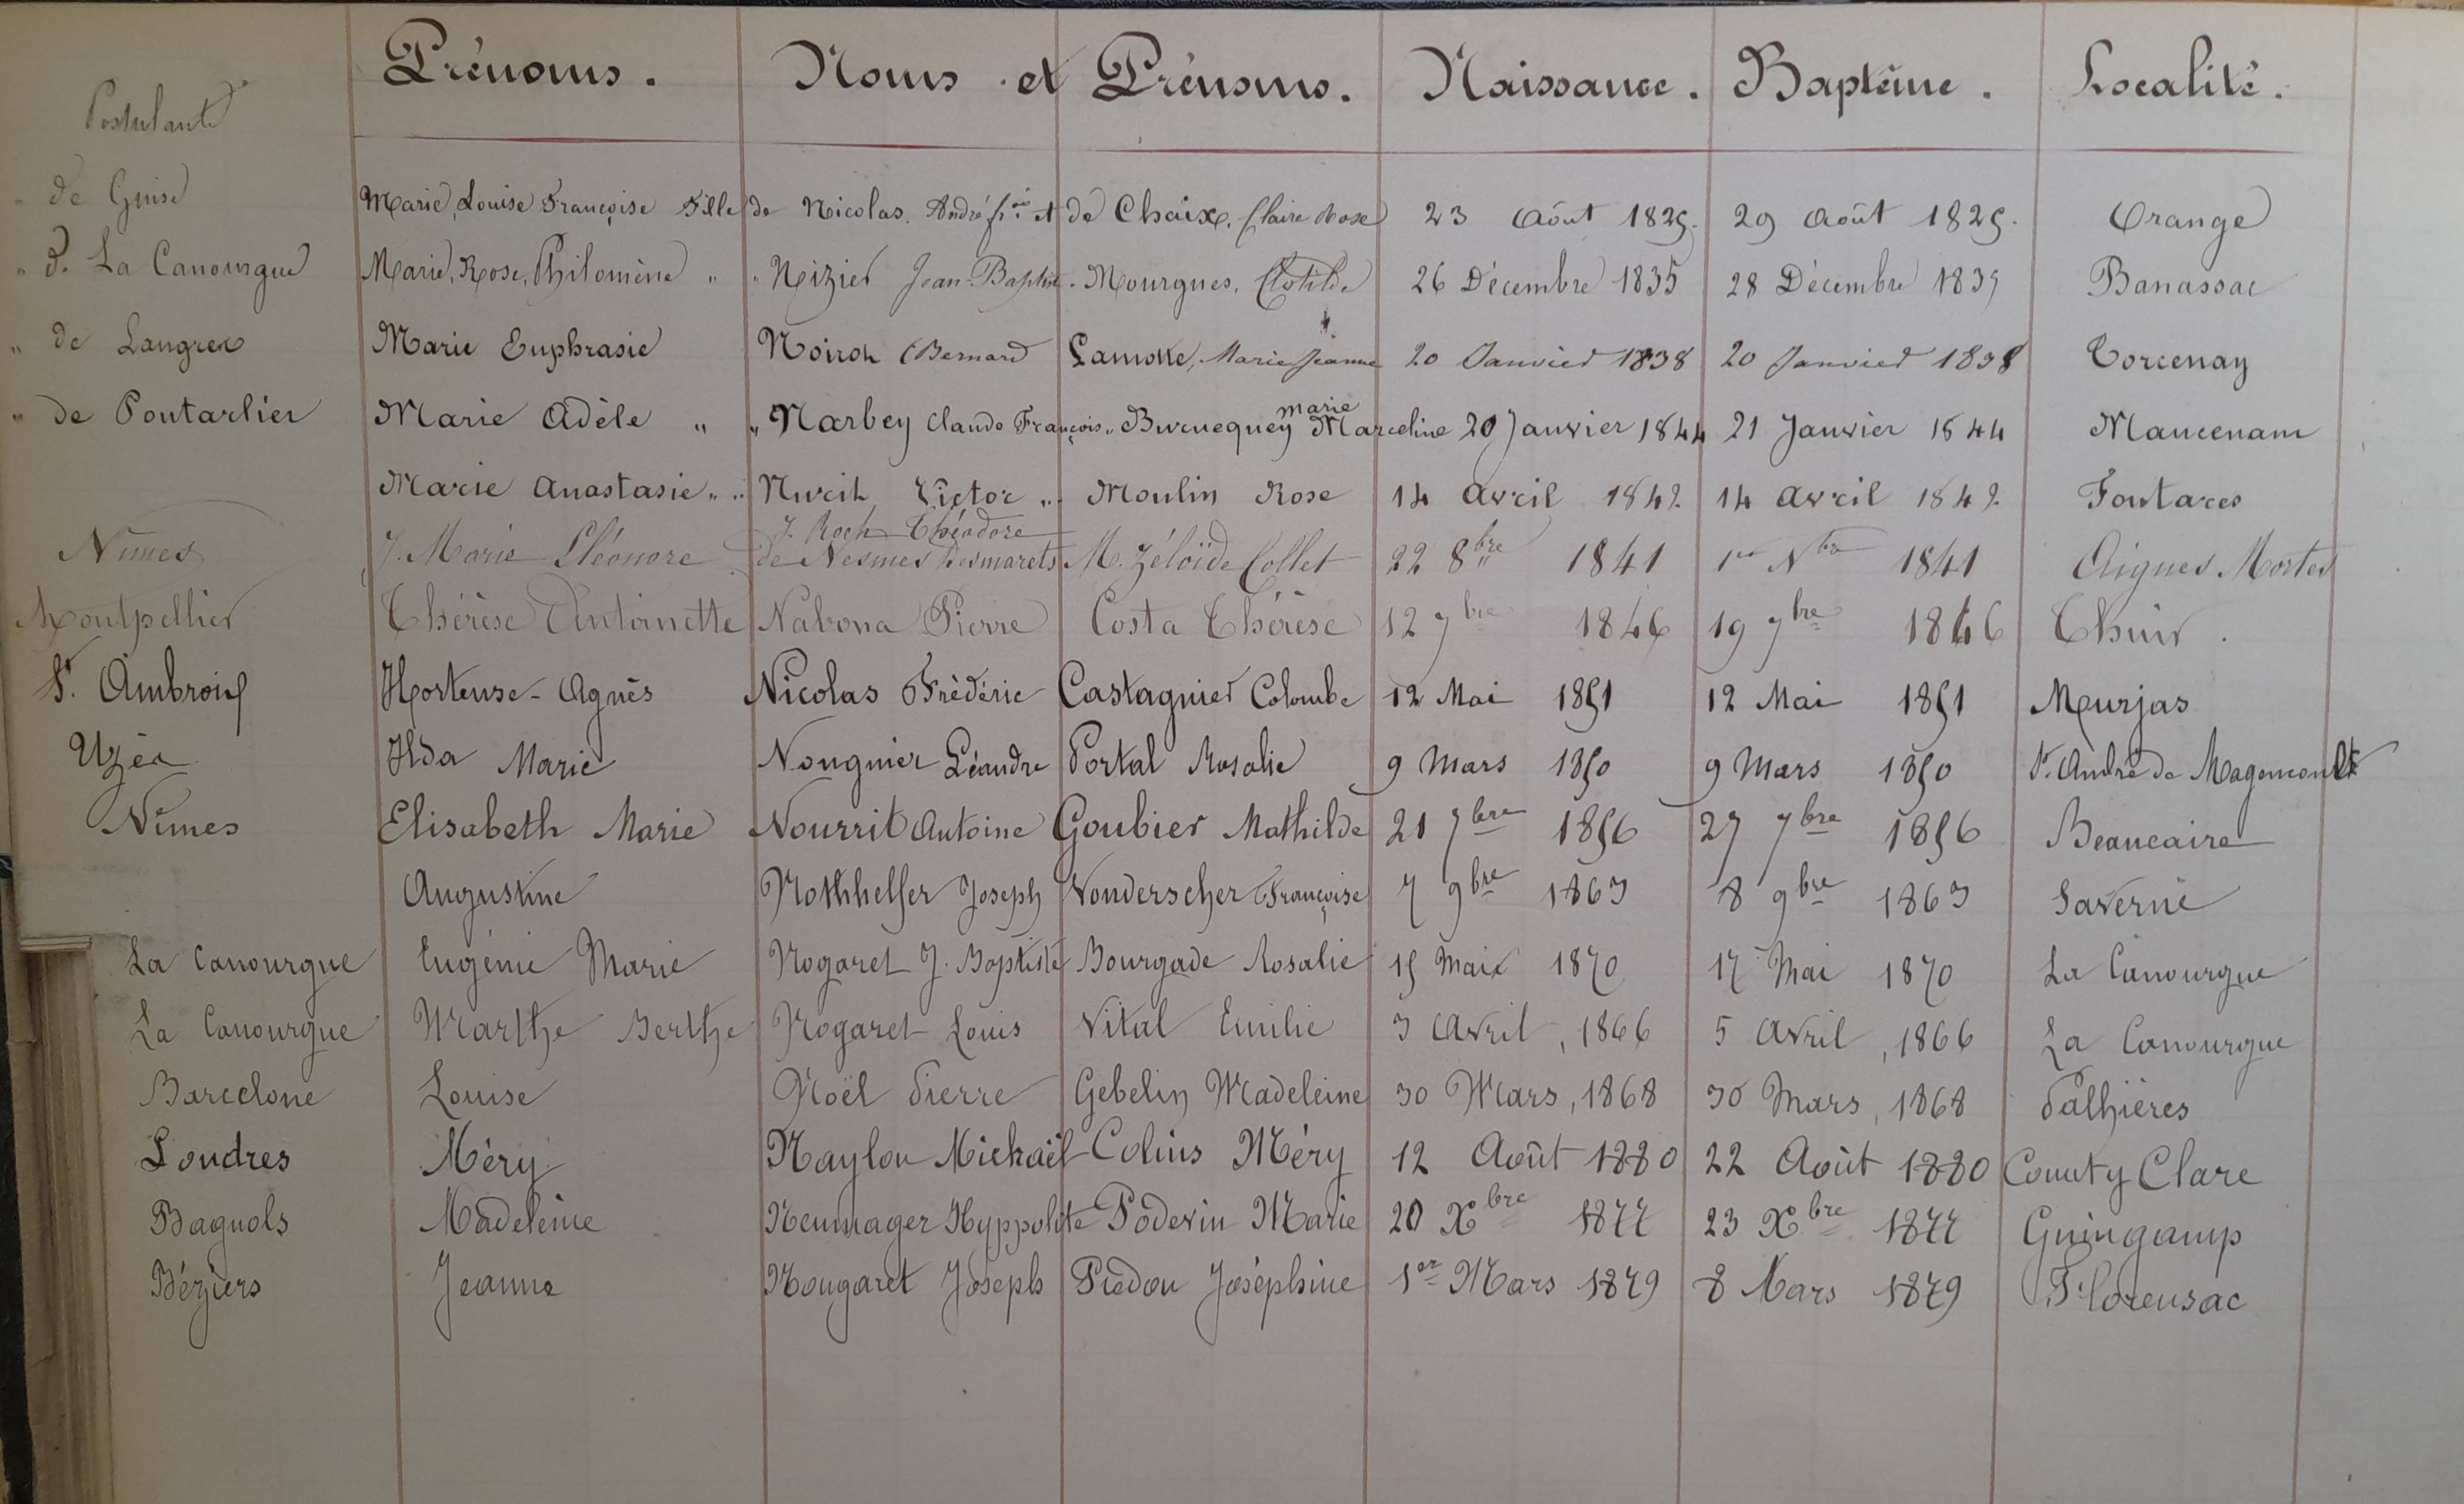 Prénoms. Noms et Prénoms. Naissance. Baptême. Localité.
Postulante
" de Guise Marie, Louise Françoise Fille de Nicolas. André et de Chaix, Claire Rose 23 Août 1825. 29 Août 1825. Orange
" d. La Canourgue Marie, Rose, Philomène " " Nizier Jean-Baptiste. Mourgues, Clotilde 26 Décembre 1835 28 Décembre 1835 Banassac
" de Langres Marie Euphrasie Noirot Bernard Lamotte, Marie Jeanne 20 Janvier 1838 20 Janvier 1838 Torcenay
" de Pontarlier Marie Adèle " " Narbey Claude François " marie Marceline 20 Janvier 1844 21 Janvier 1844 Mancenans
Marie Anastasie " " Nurit Victor " Moulin Rose 14 Avril 1842 14 Avril 1842 Fontares
Nîmes J. Marie Eléonore J. Roch Théodore de Nesmes Desmarets M. Zéloïde Collet 22 8bre 1841 1er Nbre 1841 Aigues Mortes
Montpellier Thérèse Antoinette Nabona Pierre Costa Thérèse 12 7bre 1846 19 7bre 1846 Thuir.
St. Ambroix Hortense-Agnès Nicolas Frédéric Castagnier Colombe 12 Mai 1851 12 Mai 1851 Meurjas
Uzès Ilda Marie Nougnier Léandre Portal Rosalie 9 Mars 1850 9 Mars 1850 St. André de
Nîmes Elisabeth Marie Nourrit Antoine Goubier Mathilde 21 7bre 1856 27 7bre 1856 Beaucaire
Augustine Nothhelfer Joseph Vonderscher Françoise 7 9bre 1863 8 9bre 1863 Saverne
La Canourgue Eugénie Marie Nogaret J. Baptiste Bourgade Rosalie 15 Mai 1870 17 Mai 1870 La Canourgue
La Canourgue Marthe Berthe Nogaret Louis Vital Emilie 3 Avril, 1866 5 Avril, 1866 La Canourgue
Barcelone Louise Noël Pierre Gebelin Madeleine 30 Mars, 1868 30 Mars, 1868 Palhières
Londres Méry Naylon Mickaël Colins Méry 12 Août 1880 22 Août 1880 County Clare
Bagnols Madeleine Nennager Hyppolite Podevin Marie 20 Xbre 1877 23 Xbre 1877 Guingamp
Béziers Jeanne Nougaret Joseph Piedon Joséphine 1er Mars 1879 8 Mars 1879 Florensac